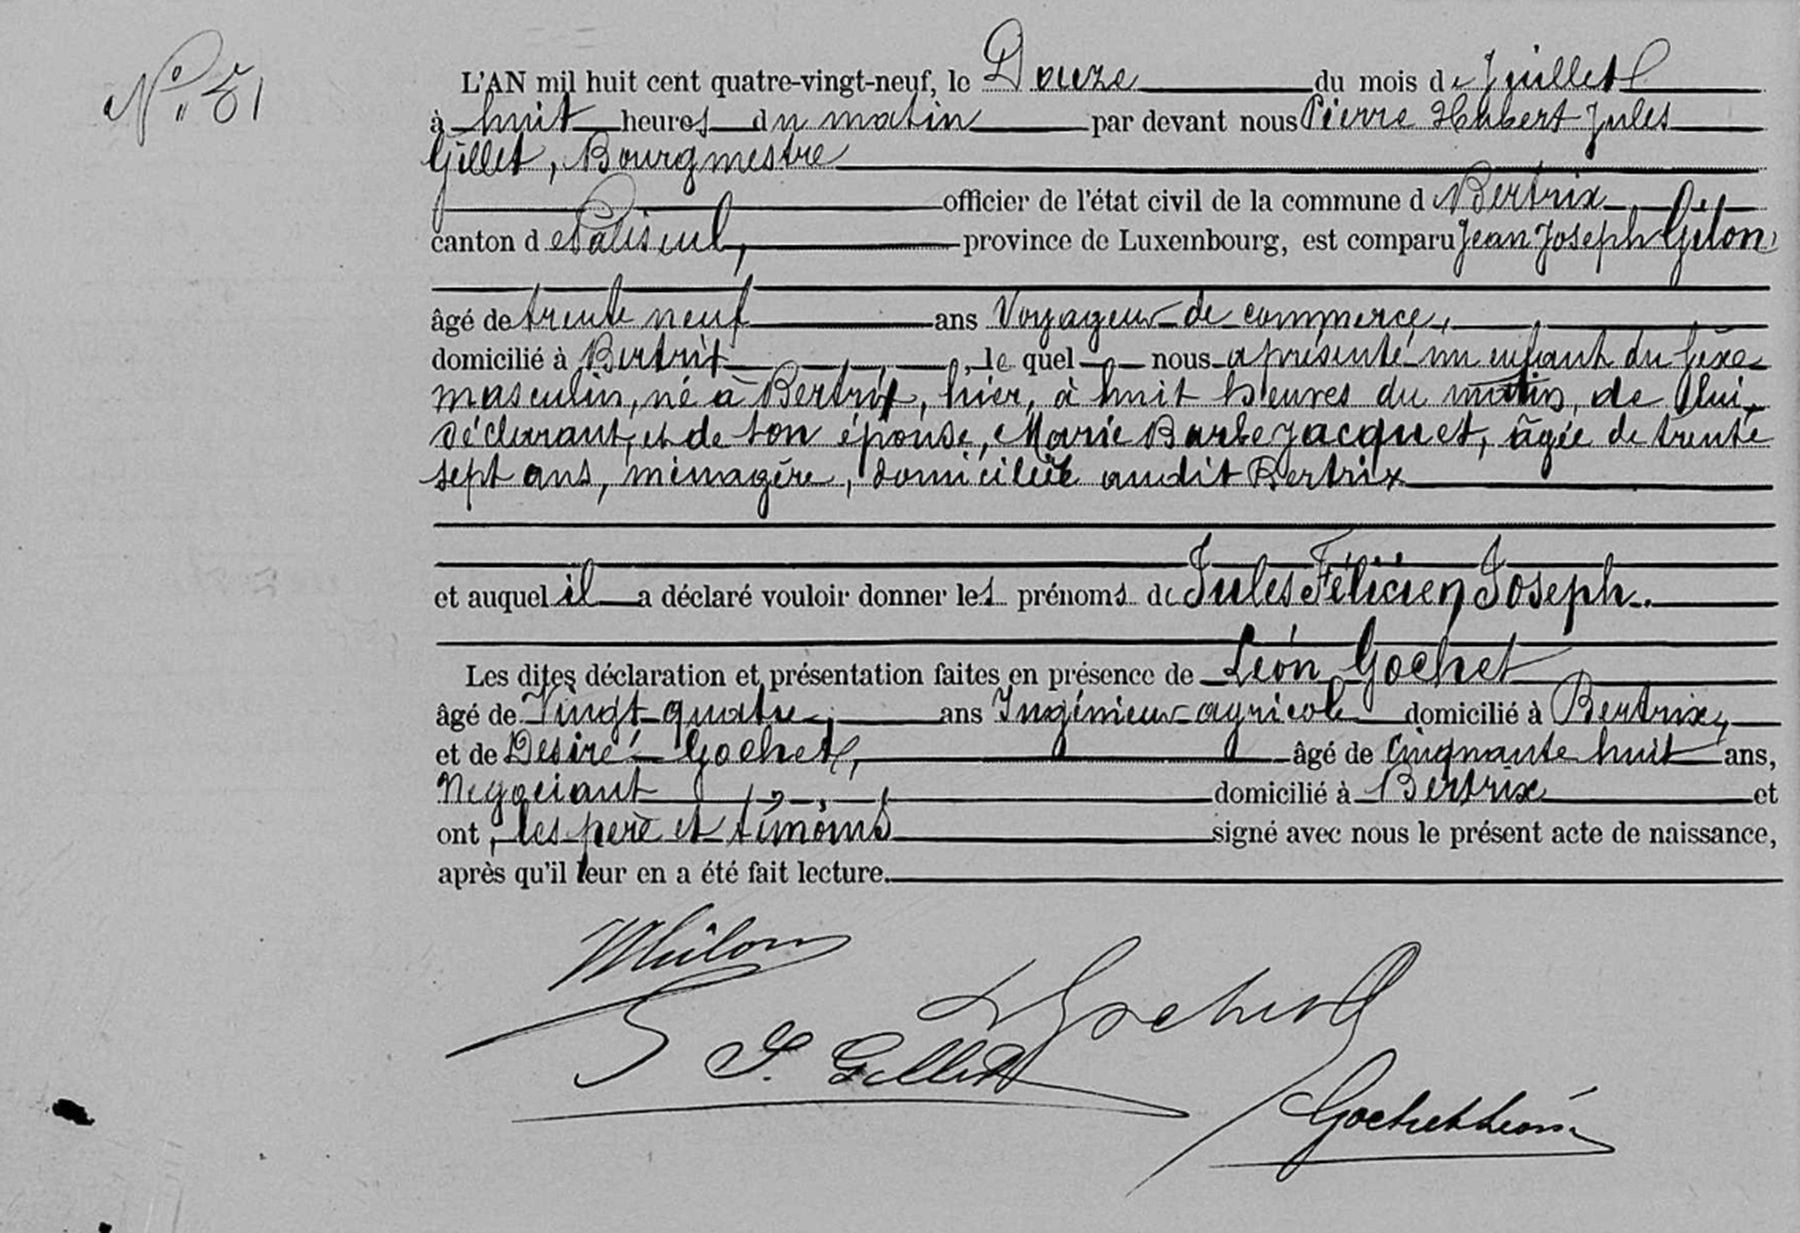 N° 51
L'AN mil huit cent quatre-vingt-neuf, le Douze du mois de Juillet
à huit heures du matin par devant nous Pierre Hubert Jules
Gillet, Bourgmestre
officier de l'état civil de la commune d Bertrix
canton de Paliseul, province de Luxembourg, est comparu Jean Joseph
âgé de trente neuf ans Voyageur de commerce,
domicilié à Bertrix, lequel nous a présenté un enfant du sèxe
masculin, né à Bertrix, hier, à huit heures du matin, de lui,
déclarant, et de son épouse, Marie Barbe Jacquet, âgée de trente
sept ans, ménagère, domiciliée audit Bertrix
et auquel il a déclaré vouloir donner les prénoms de Jules Félicien Joseph.
Les dites déclaration et présentation faites en présence de Léon Gochet
âgé de Vingt quatre, ans Ingénieur agricole domicilié à Bertrix,
et de Désiré Gochet, âgé de Cinquante huit ans,
Négociant domicilié à Bertrix et
ont, les père et témoins signé avec nous le présent acte de naissance,
après qu'il leur en a été fait lecture.
D Gochet
J. Gillet
Gochet Léon